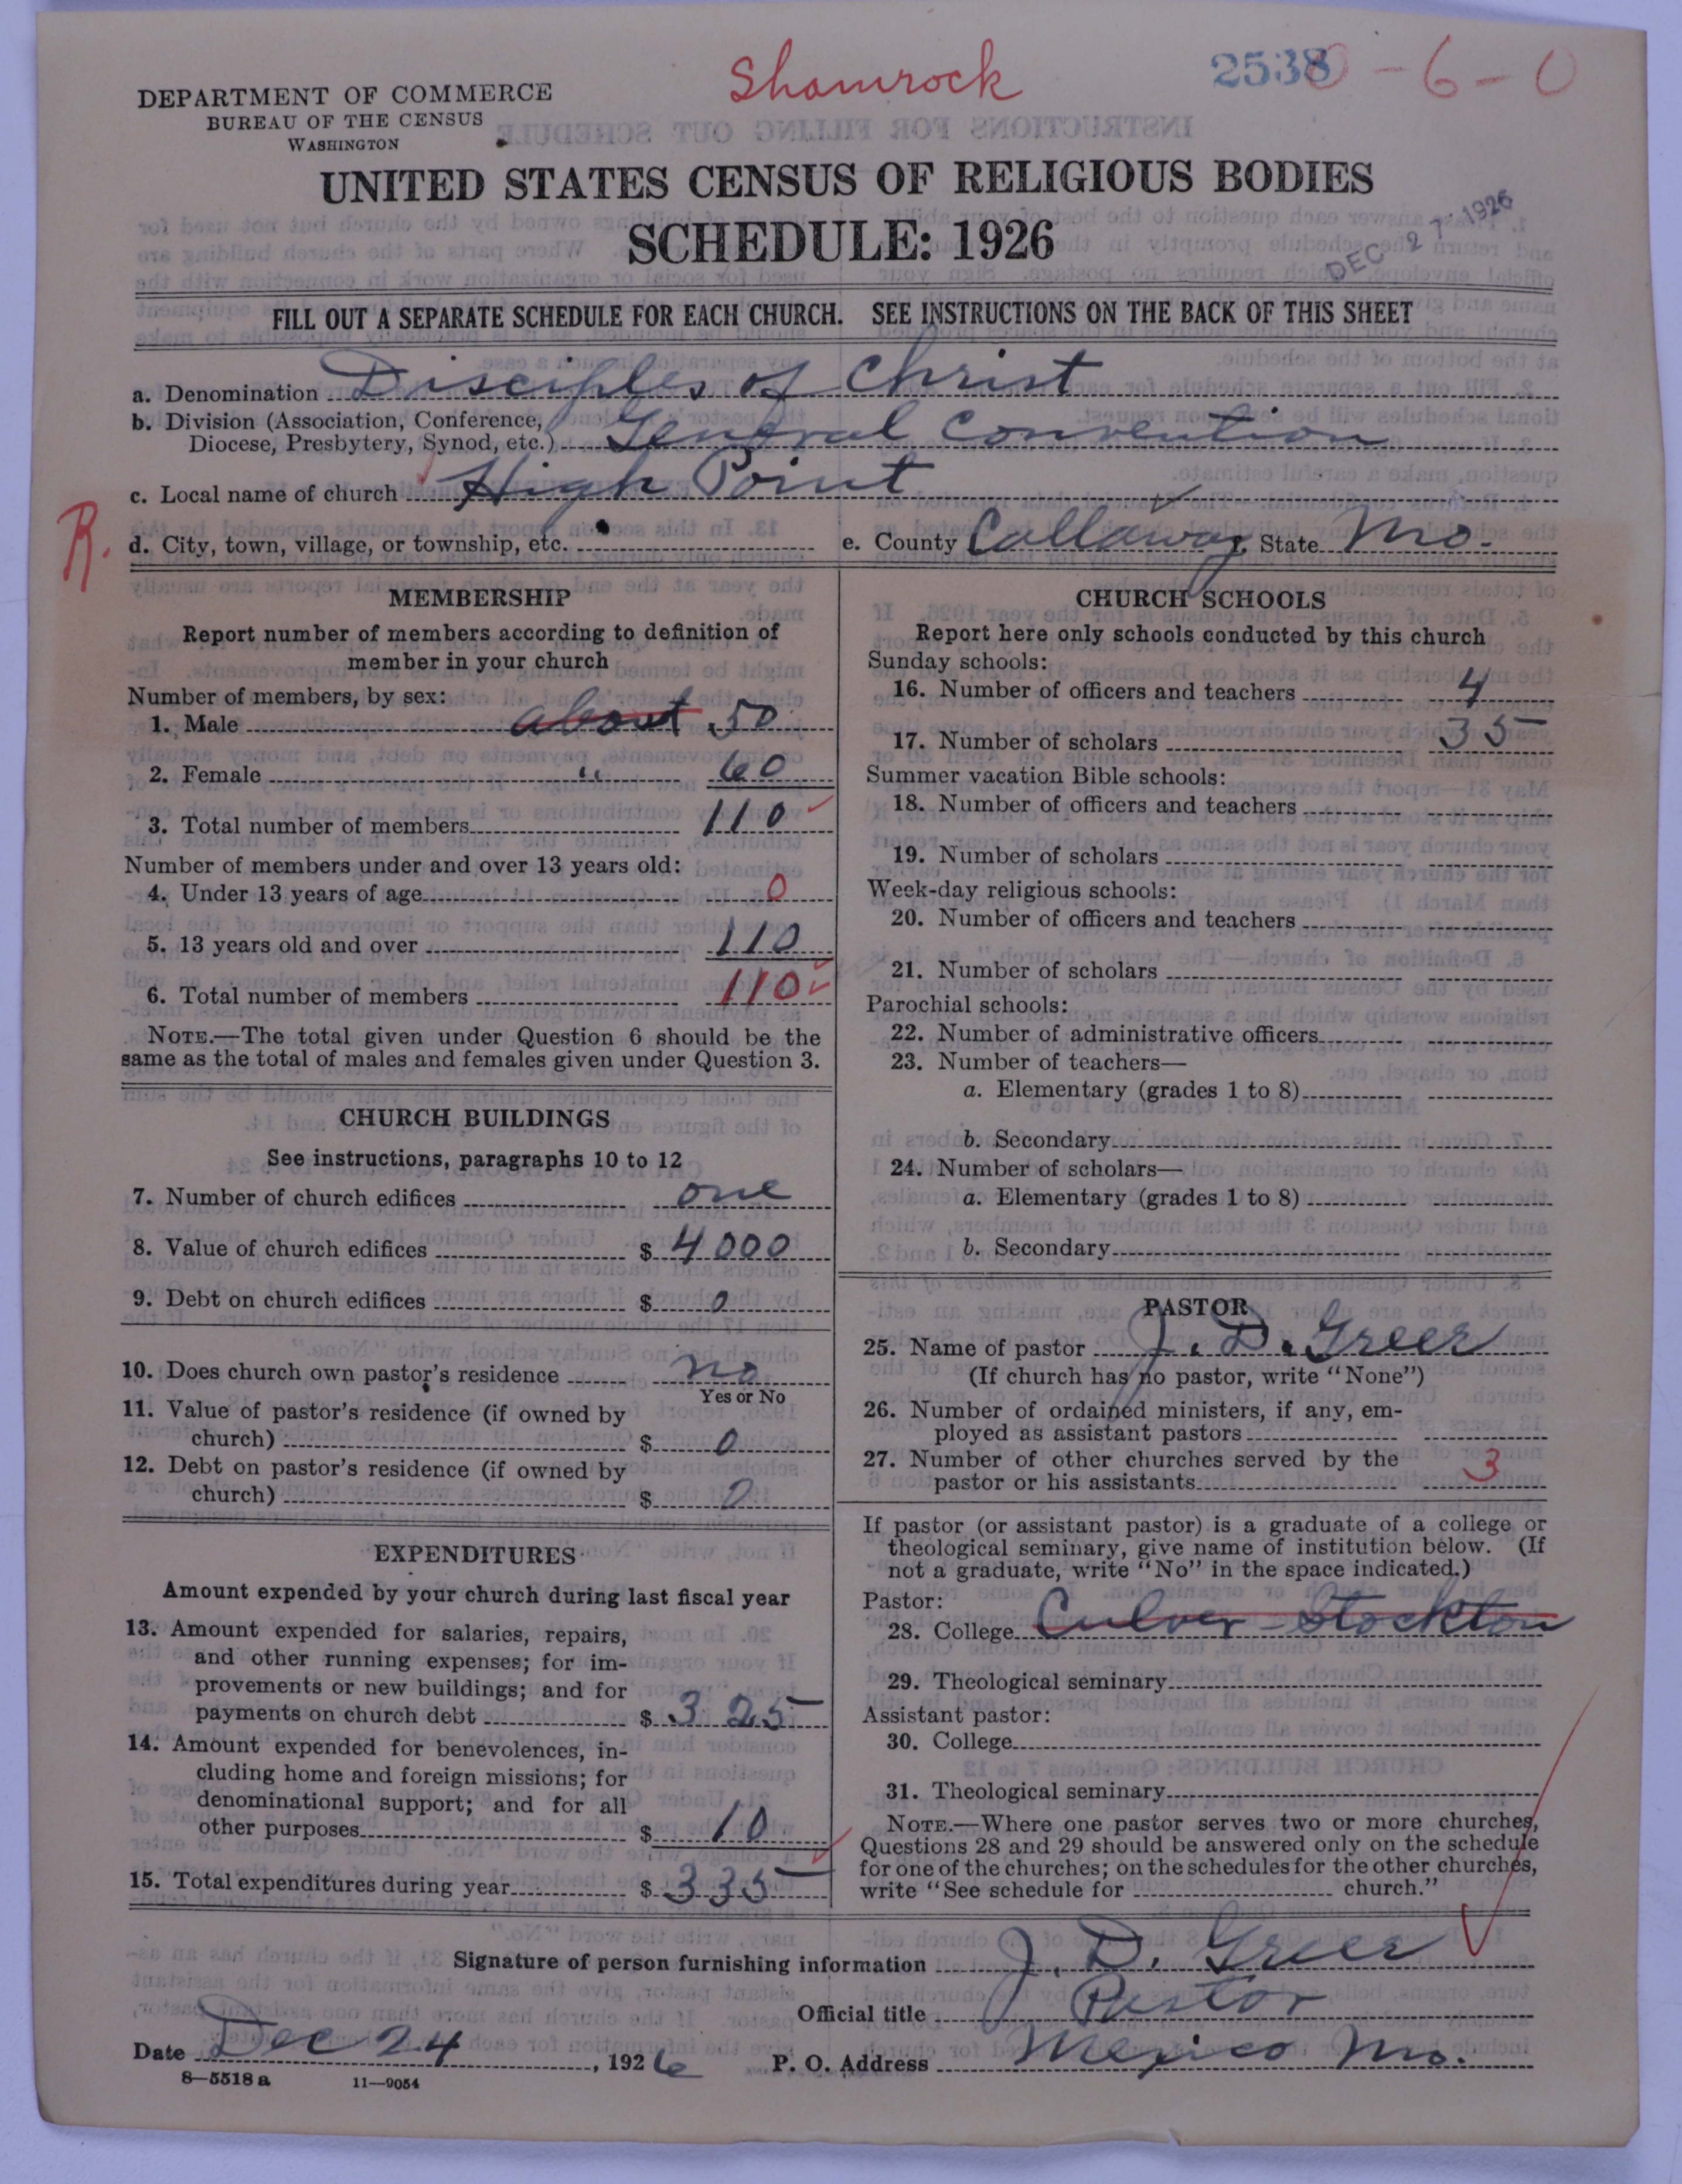 Shamrock
2538 0-6-0
DEPARTMENT OF COMMERCE
BUREAU OF THE CENSUS
WASHINGTON
UNITED STATES CENSUS OF RELIGIOUS BODIES
SCHEDULE: 1926
DEC 27 1926
FILL OUT A SEPARATE SCHEDULE FOR EACH CHURCH. SEE INSTRUCTIONS ON THE BACK OF THIS SHEET
a. Denomination Disciples of Christ
b. Division (Association, Conference,
Diocese, Presbytery, Synod, etc.) General Convention
c. Local name of church High Point
R. d. City, town, village, or township, etc. e. County Callaway, State Mo.
MEMBERSHIP
Report number of members according to definition of
member in your church
Number of members, by sex:
1. Male about 50
2. Female " 60
3. Total number of members 110
Number of members under and over 13 years old:
4. Under 13 years of age 0
5. 13 years old and over 110
6. Total number of members 110
NOTE.—The total given under Question 6 should be the
same as the total of males and females given under Question 3.
CHURCH BUILDINGS
See instructions, paragraphs 10 to 12
7. Number of church edifices one
8. Value of church edifices $ 4000
9. Debt on church edifices $ 0
10. Does church own pastor's residence no
Yes or No
11. Value of pastor's residence (if owned by
church) $ 0
12. Debt on pastor's residence (if owned by
church) $ 0
EXPENDITURES
Amount expended by your church during last fiscal year
13. Amount expended for salaries, repairs,
and other running expenses; for im-
provements or new buildings; and for
payments on church debt $ 325
14. Amount expended for benevolences, in-
cluding home and foreign missions; for
denominational support; and for all
other purposes $ 10
15. Total expenditures during year $ 335
CHURCH SCHOOLS
Report here only schools conducted by this church
Sunday schools:
16. Number of officers and teachers 4
17. Number of scholars 35
Summer vacation Bible schools:
18. Number of officers and teachers
19. Number of scholars
Week-day religious schools:
20. Number of officers and teachers
21. Number of scholars
Parochial schools:
22. Number of administrative officers
23. Number of teachers—
a. Elementary (grades 1 to 8)
b. Secondary
24. Number of scholars—
a. Elementary (grades 1 to 8)
b. Secondary
PASTOR
25. Name of pastor J. D. Greer
(If church has no pastor, write "None")
26. Number of ordained ministers, if any, em-
ployed as assistant pastors
27. Number of other churches served by the
pastor or his assistants 3
If pastor (or assistant pastor) is a graduate of a college or
theological seminary, give name of institution below. (If
not a graduate, write "No" in the space indicated.)
Pastor:
28. College Culver-Stockton
29. Theological seminary
Assistant pastor:
30. College
31. Theological seminary
NOTE.—Where one pastor serves two or more churches,
Questions 28 and 29 should be answered only on the schedule
for one of the churches; on the schedules for the other churches,
write "See schedule for church."
Signature of person furnishing information J. D. Greer
Official title Pastor
Date Dec 24, 1926 P. O. Address Mexico Mo.
8—5518 a 11—9054